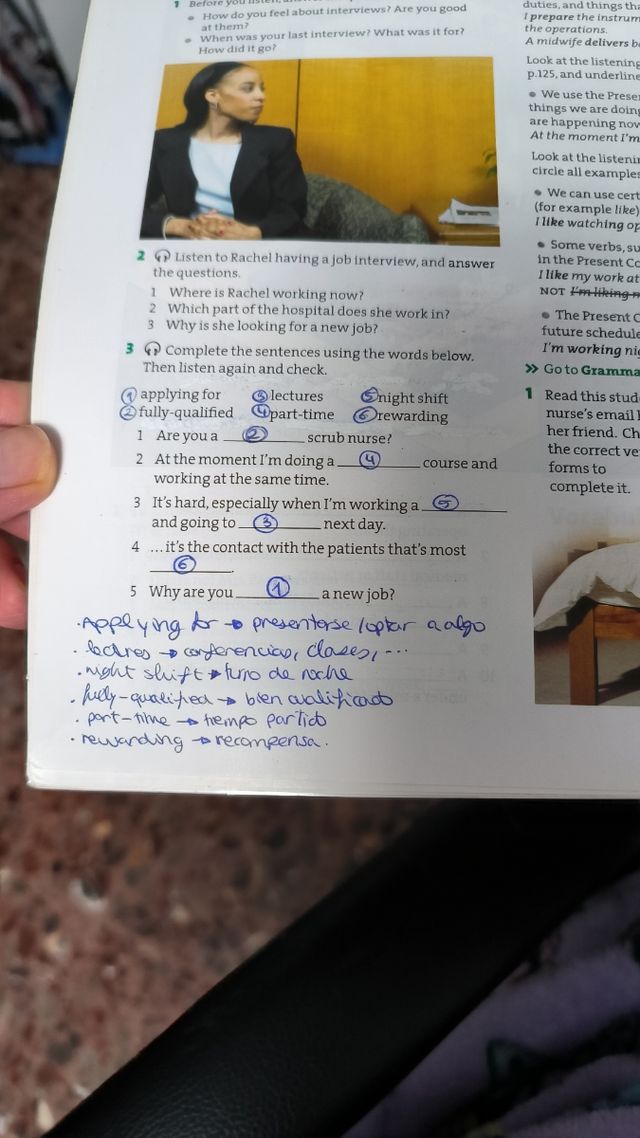 1 Before you listen, answer
• How do you feel about interviews? Are you good
at them?
• When was your last interview? What was it for?
How did it go?
2 Listen to Rachel having a job interview, and answer
the questions.
1 Where is Rachel working now?
2 Which part of the hospital does she work in?
3 Why is she looking for a new job?
3 Complete the sentences using the words below.
Then listen again and check.
① applying for ③ lectures ⑤ night shift
② fully-qualified ④ part-time ⑥ rewarding
1 Are you a ② scrub nurse?
2 At the moment I'm doing a ④ course and
working at the same time.
3 It's hard, especially when I'm working a ⑤
and going to ③ next day.
4 ...it's the contact with the patients that's most
⑥.
5 Why are you ① a new job?
· Applying for → presentarse/optar a algo
· lectures → conferencias, clases, ...
· night shift → turno de noche
· fully-qualified → bien cualificado
· part-time → tiempo partido
· rewarding → recompensa.
duties, and things tha
I prepare the instrum
the operations.
A midwife delivers b
Look at the listening
p.125, and underline
• We use the Prese
things we are doing
are happening now
At the moment I'm
Look at the listenin
circle all examples
• We can use cert
(for example like)
I like watching op
• Some verbs, su
in the Present Co
I like my work at
NOT I'm liking m
• The Present C
future schedule
I'm working nig
» Go to Gramma
1 Read this stud
nurse's email
her friend. Ch
the correct ve
forms to
complete it.